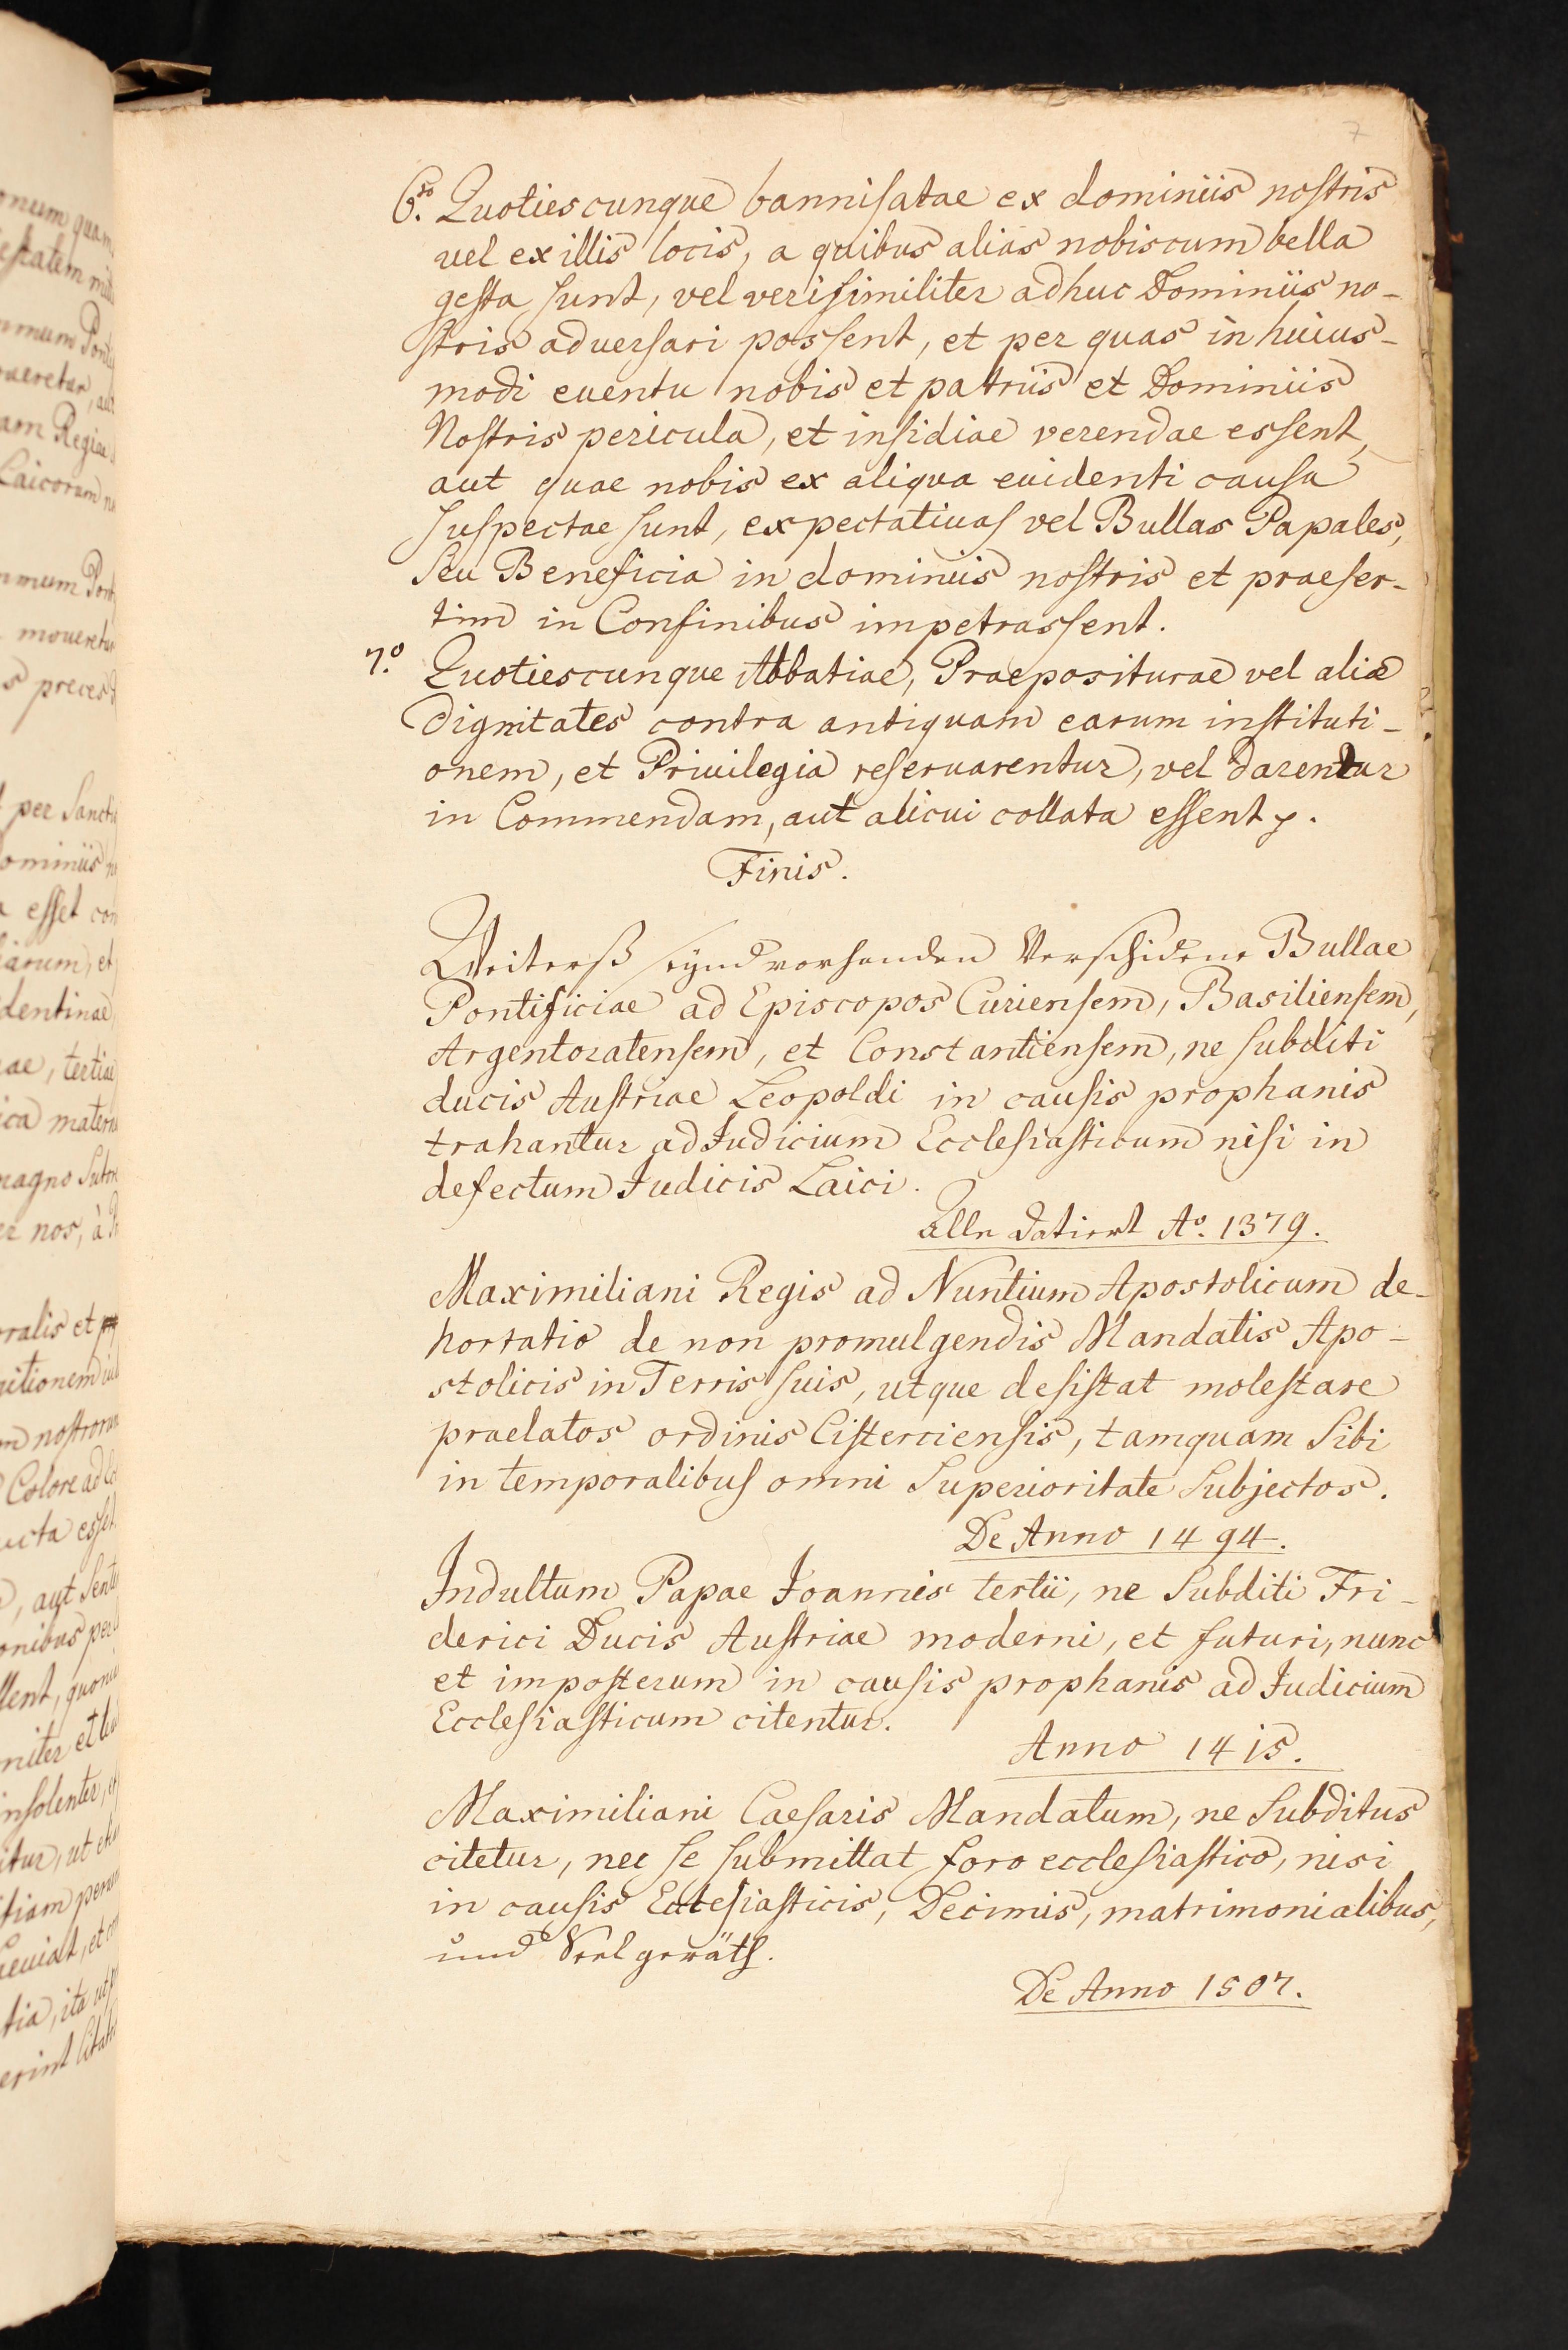 7
6.to Quotiescunque bannisatae ex dominiis nostris
uel ex illis locis, a quibus alias nobiscum bella
gesta sunt, vel verisimiliter adhuc Dominiis no-
stris aduersari possent, et per quas in huius-
modi euentu nobis et patriis et Dominiis
Nostris pericula, et insidiae verendae essent,
aut quae nobis ex aliqua euidenti causa
suspectae sunt, expectatiuas vel Bullas Papales,
seu Beneficia in dominiis nostris et praeser-
tim in Confinibus impetrassent.
7.o Quotiescunque Abbatiae, Praepositurae vel aliae
dignitates contra antiquam earum instituti-
onem, et Priuilegia reseruarentur, vel darentur
in Commendam, aut alicui collata essent.
Finis.
Weiterß seynd vorhanden Verschidene Bullae
Pontificiae ad Episcopos Curiensem, Basiliensem,
Argentoratensem, et Constantiensem, ne subditi
ducis Austriae Leopoldi in causis prophanis
trahantur ad Iudicium Ecclesiasticum nisi in
defectum Iudicis Laici.
Alle datiert Ao. 1379.
Maximiliani Regis ad Nuntium Apostolicum de-
hortatio de non promulgendis Mandatis Apo-
stolicis in Terris suis, utque desistat molestare
praelatos ordinis Cisterciensis, tamquam Sibi
in temporalibus omni Superioritate Subjectos.
De Anno 1494.
Indultum Papae Ioannis tertii, ne Subditi Fri-
derici Ducis Austriae moderni, et futuri, nunc
et imposterum in causis prophanis ad Iudicium
Ecclesiasticum citentur.
Anno 1415.
Maximiliani Caesaris Mandatum, ne Subditus
citetur, nec se submittat foro ecclesiastico, nisi
in causis Ecclesiasticis, Decimis, matrimonialibus,
und Seel geräth.
De Anno 1507.